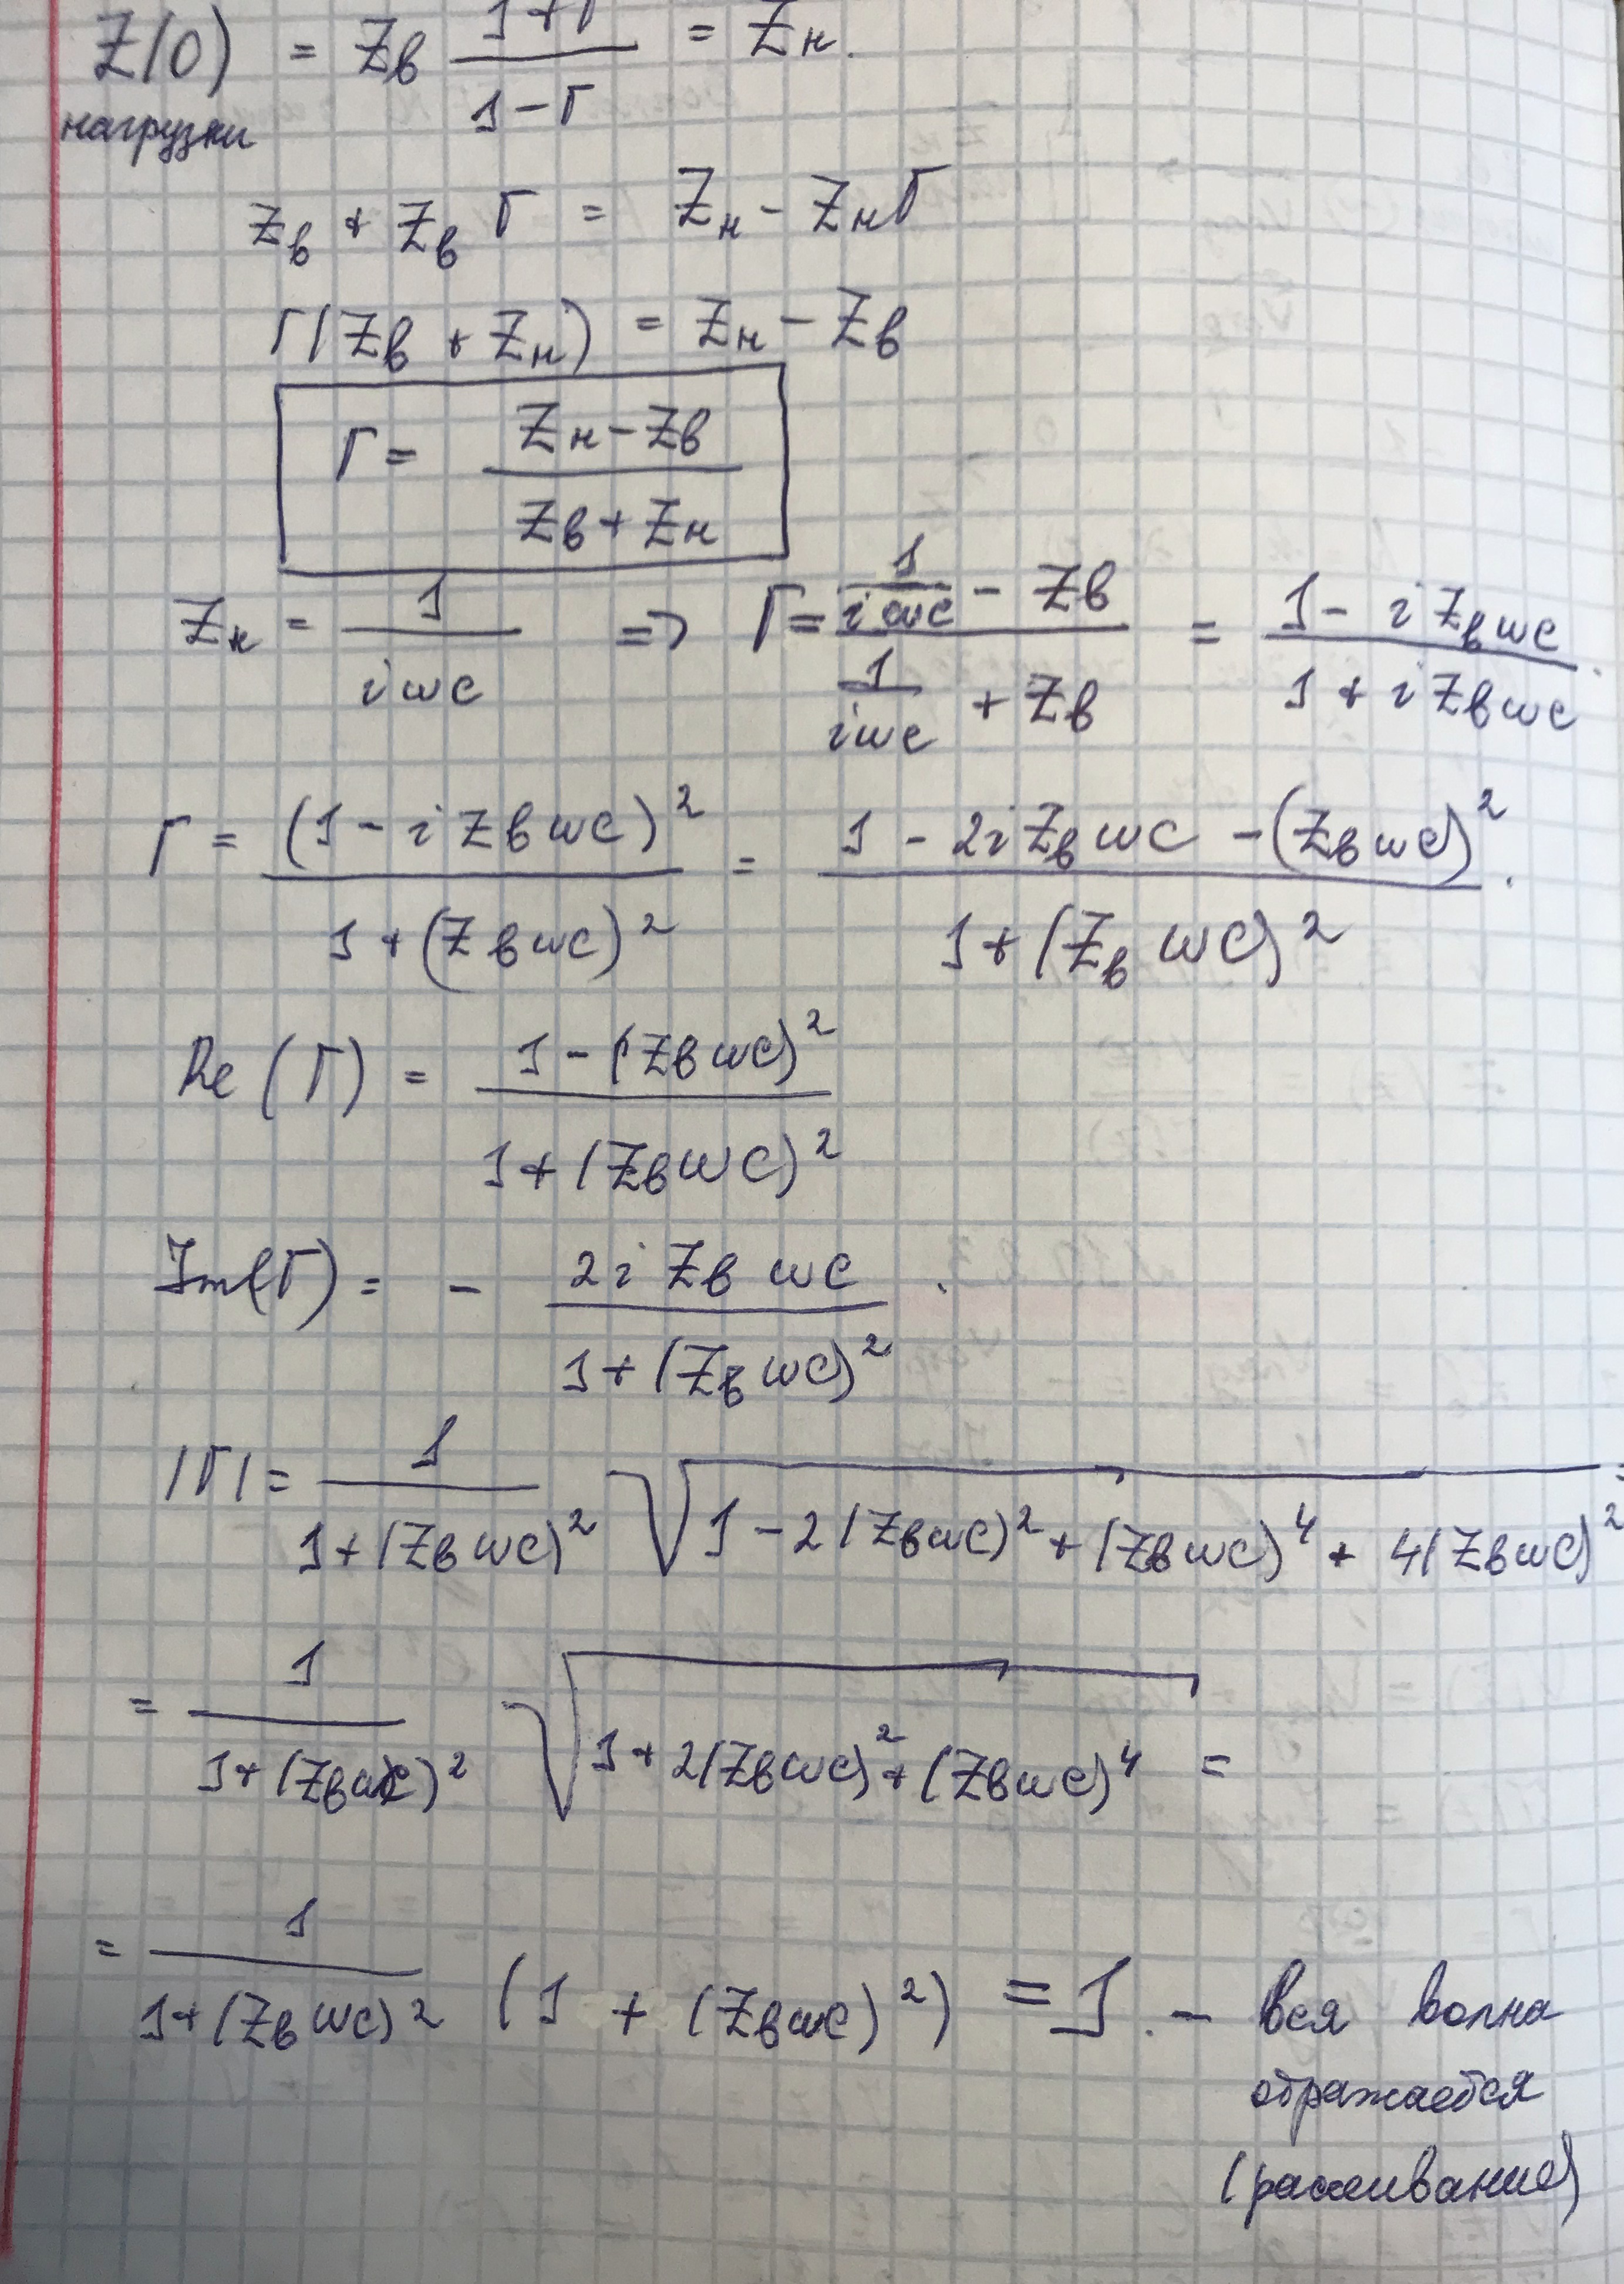 Z(0) = Zв (1+Г)/(1-Г) = Zн.
нагрузки
Zв + Zв Г = Zн - ZнГ
Г(Zв + Zн) = Zн - Zв
Г = (Zн - Zв)/(Zв + Zн)
Zн = 1/(iωc) => Г = (1/(iωc) - Zв)/(1/(iωc) + Zв) = (1 - i Zв ωc)/(1 + i Zв ωc).
Г = (1 - i Zв ωc)²/(1 + (Zв ωc)²) = (1 - 2i Zв ωc - (Zв ωc)²)/(1 + (Zв ωc)²).
Re (Г) = (1 - (Zв ωc)²)/(1 + (Zв ωc)²)
Im(Г) = - (2i Zв ωc)/(1 + (Zв ωc)²).
|Г| = 1/(1 + (Zв ωc)²) √(1 - 2(Zв ωc)² + (Zв ωc)⁴ + 4(Zв ωc)²) =
= 1/(1 + (Zв ωc)²) √(1 + 2(Zв ωc)² + (Zв ωc)⁴) =
= 1/(1 + (Zв ωc)²) (1 + (Zв ωc)²) = 1. - вся волна
отражается